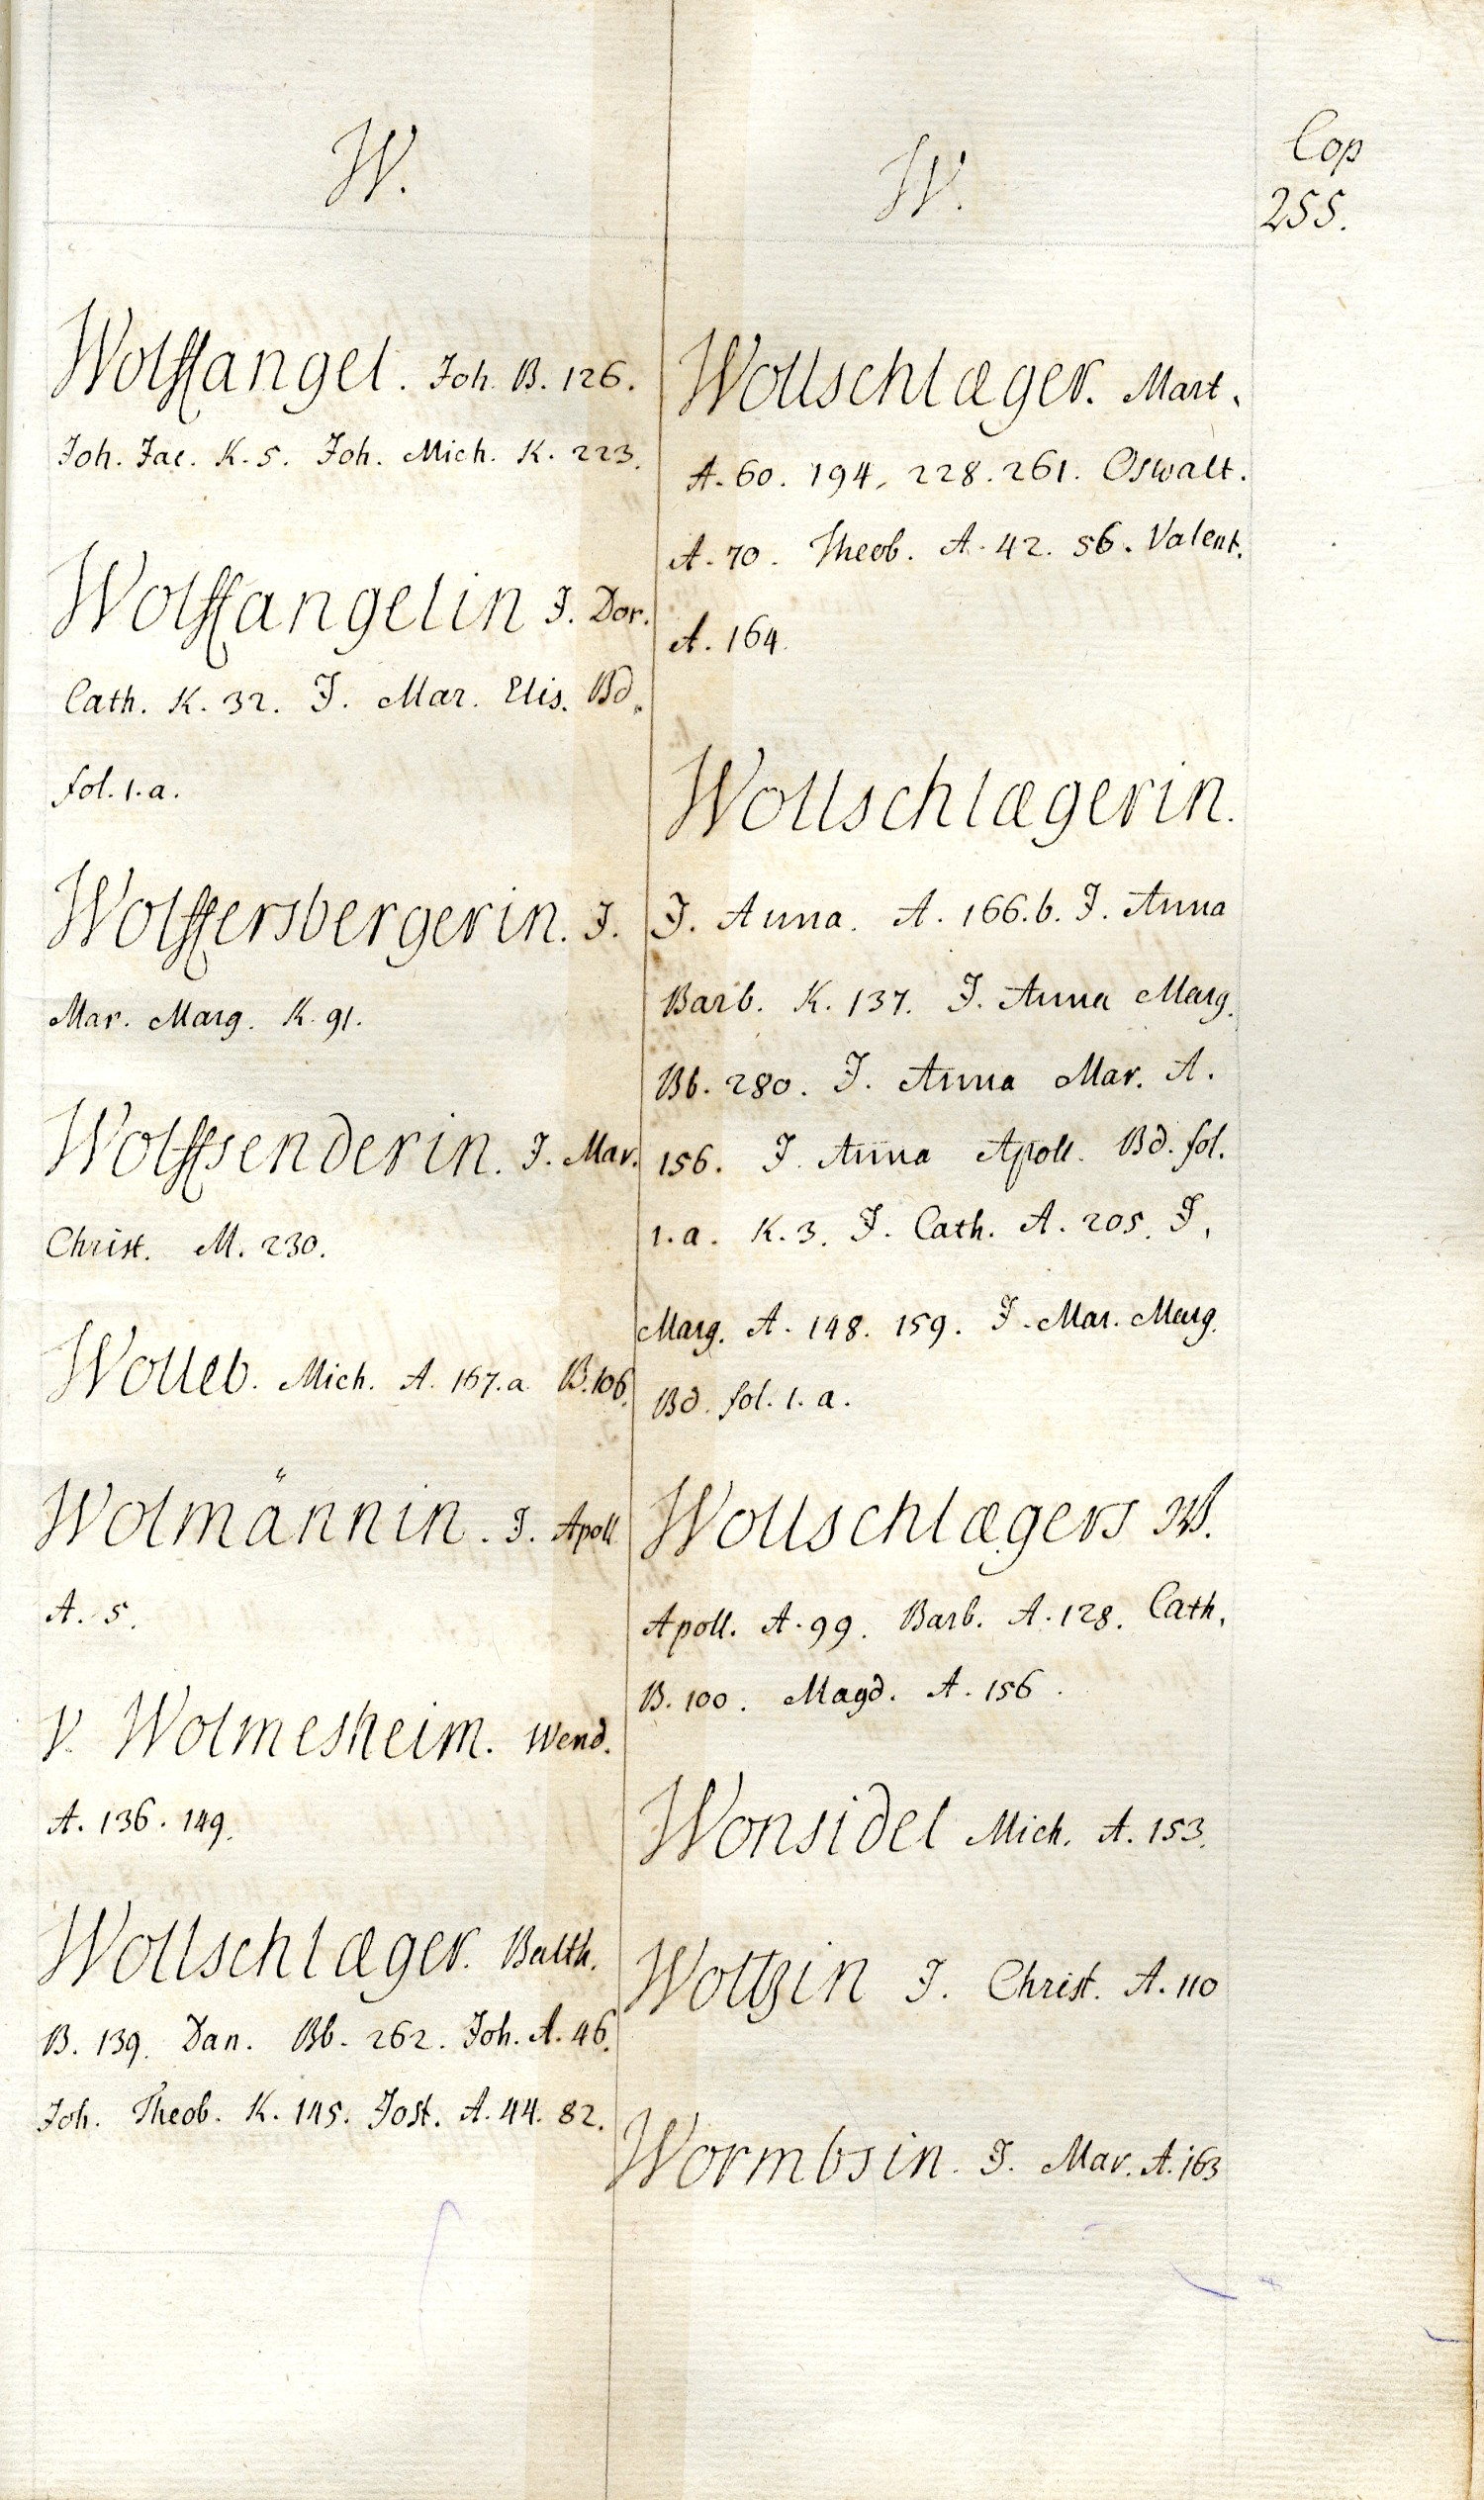 W.
Wolffangel. Joh. B. 126.
Joh. Jac. K. 5. Joh. Mich. K. 223.
Wolffangelin J. Dor.
Cath. K. 32. J. Mar. Elis. Bd.
fol. 1. a.
Wolffersbergerin. J.
Mar. Marg. K. 91.
Wolffsenderin. J. Mar.
Christ. M. 230.
Wolleb. Mich. A. 167. a B. 106.
Wolmännin. J. Apoll
A. 5.
V. Wolmesheim. Wend.
A. 136. 149.
Wollschlæger. Balth.
B. 139. Dan. Bb. 262. Joh. A. 46.
Joh. Theob. K. 145. Jost. A. 44. 82.
W.
Wollschlæger. Mart.
A. 60. 194. 228. 261. Oswalt.
A. 70. Theob. A. 42. 56. Valent.
A. 164.
Wollschlægerin.
J. Anna. A. 166. b. J. Anna
Barb. K. 137. J. Anna Marg.
Bb. 280. J. Anna Mar. A.
156. J. Anna Apoll. Bd. fol.
1. a. K. 3. J. Cath. A. 205. J.
Marg. A. 148. 159. J. Mar. Marg.
Bd. fol. 1. a.
Wollschlægers W.
Apoll. A. 99. Barb. A. 128. Cath.
B. 100. Magd. A. 156.
Wonsidel Mich. A. 153.
Woltzin J. Christ. A. 110
Wormbsin. J. Mar. A. 163
Cop
255.